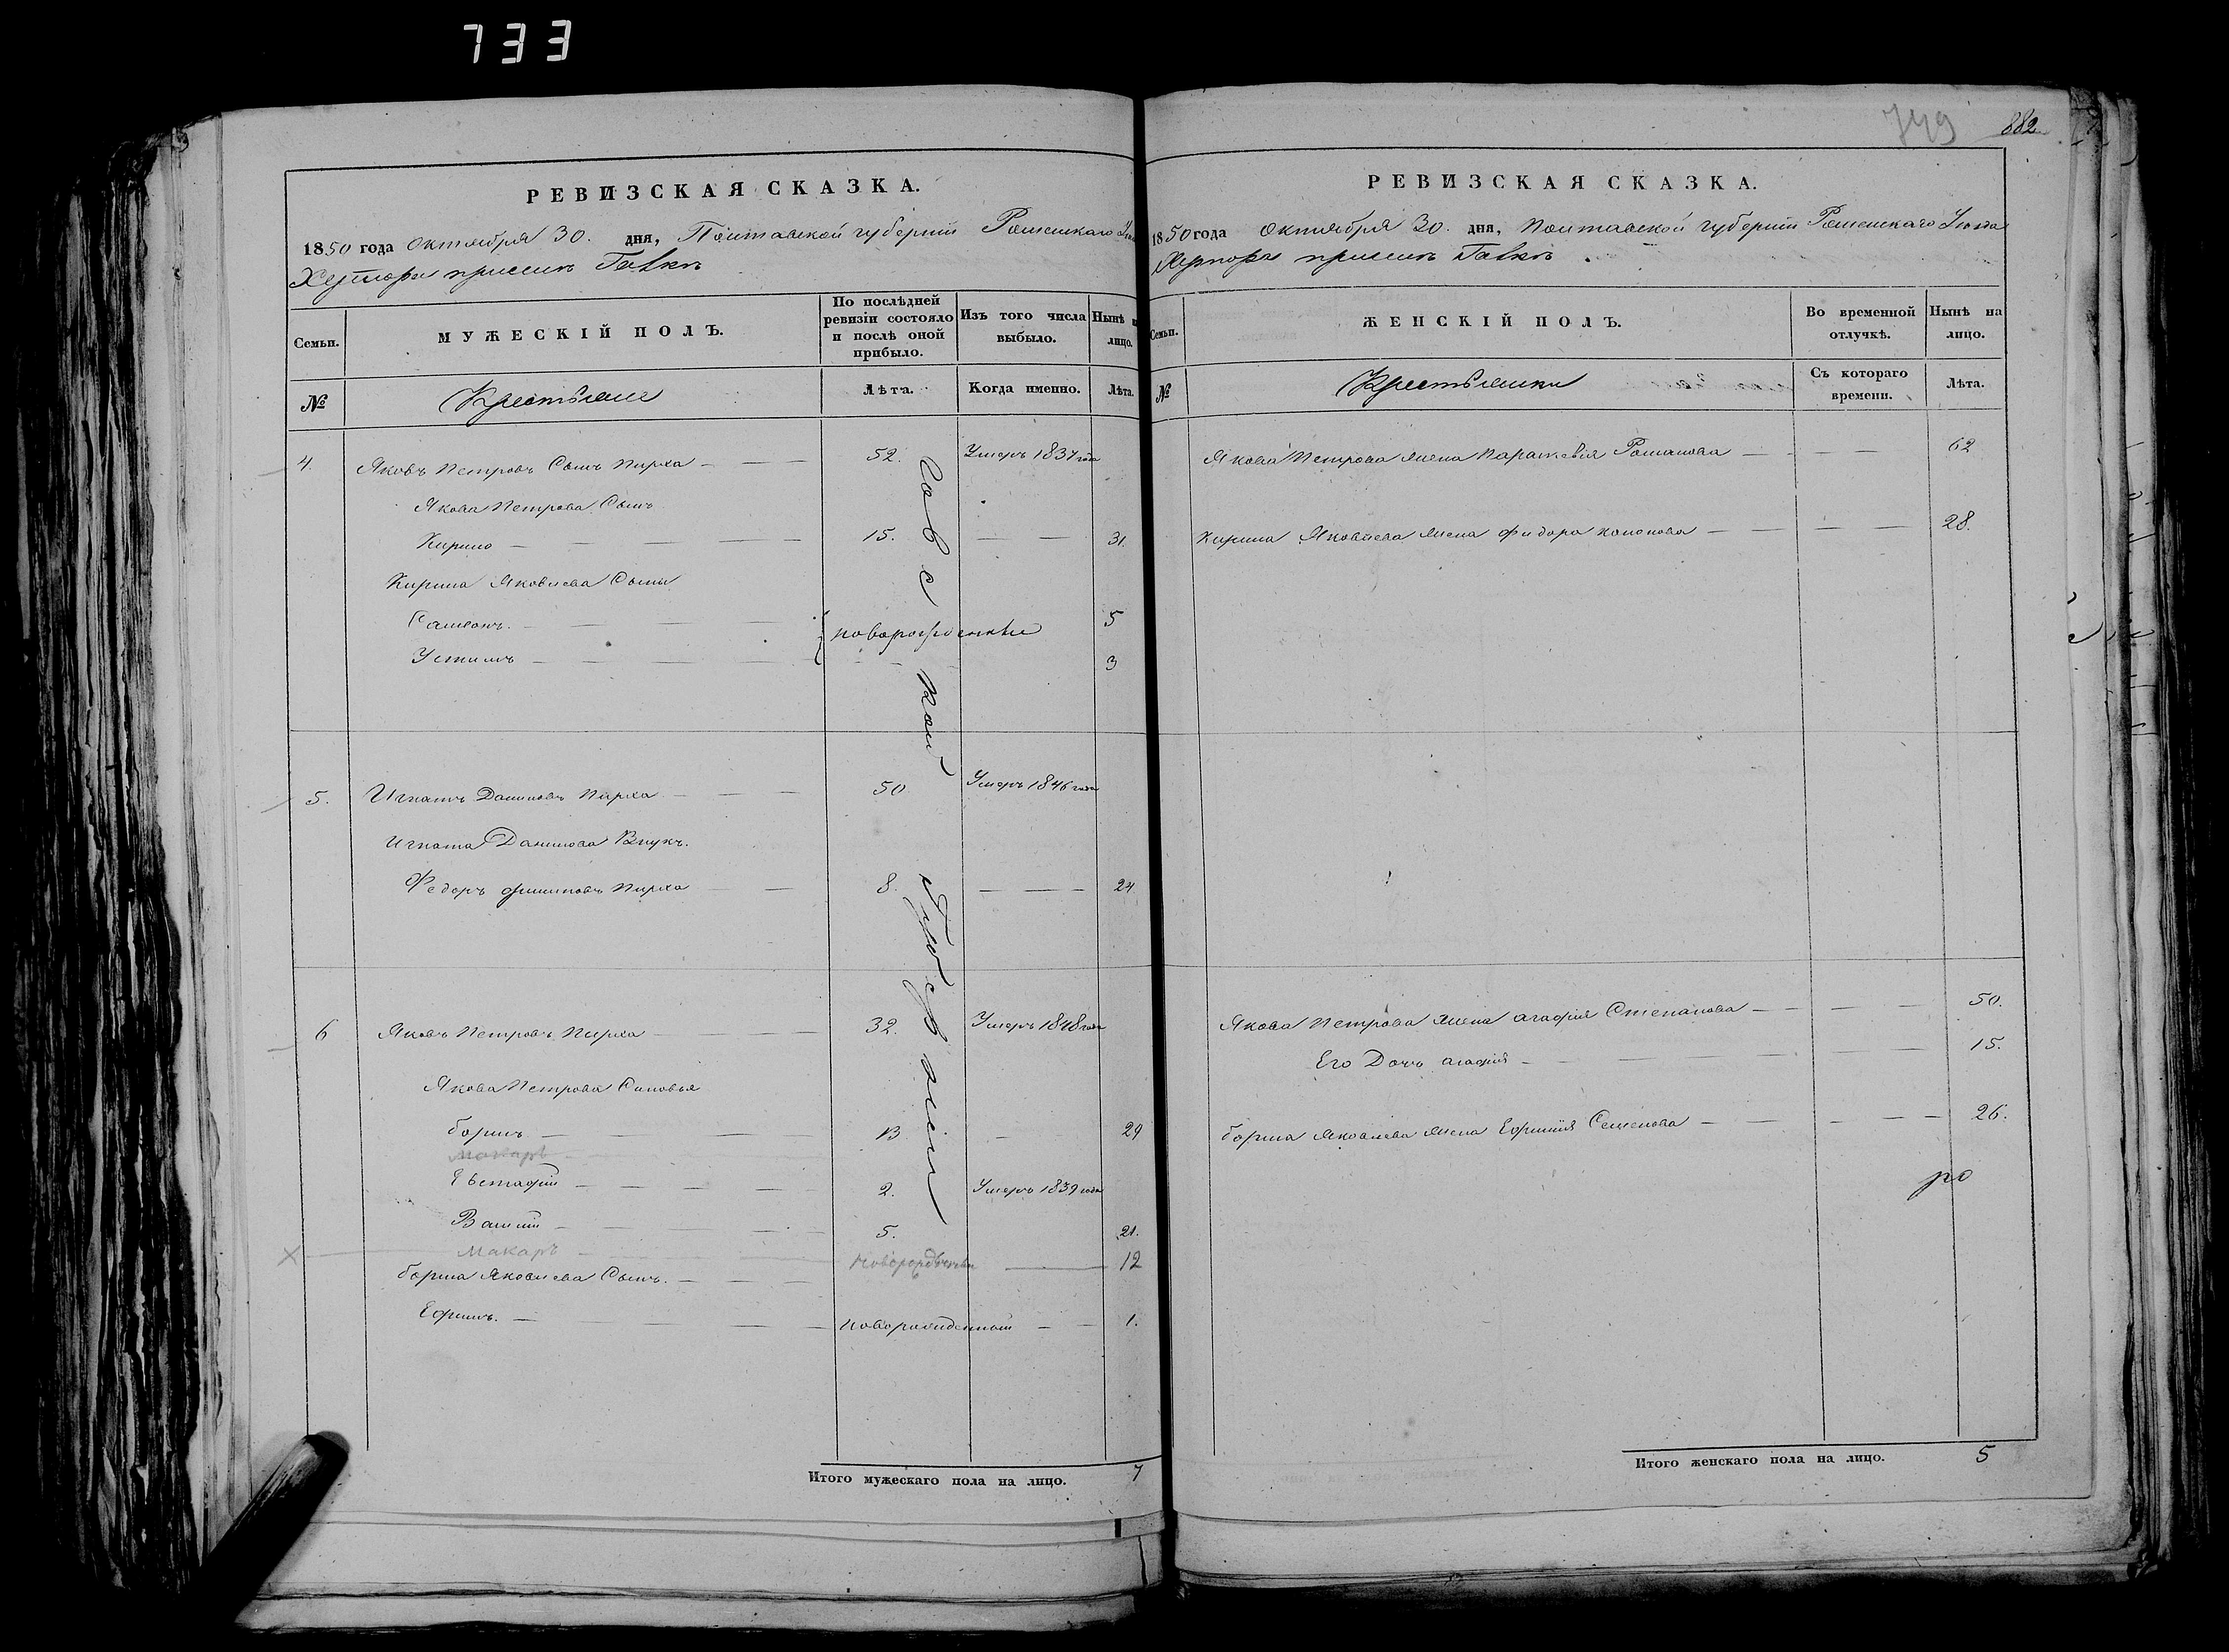 733
РЕВИЗСКАЯ СКАЗКА.
1850 года Октября 30. дня, Полтавской губерніи Роменскаго
Хуторы при
Семьи.
МУЖЕСКІЙ ПОЛЪ.
По послѣдней ревизіи состояло и послѣ оной прибыло.
Изъ того числа выбыло.
Нынѣ на лицо.
№
Крестьяне
Лѣта.
Когда именно.
Лѣта.
4. Яковъ Петровъ Сынъ Пирха 52. Умеръ 1837 года
Якова Петрова Сынъ
Кирило 15. 31.
Кирила Яковлева Сыны
Самсонъ. новорожденные 5
Устимъ 3
5. Игнатъ Даниловъ Пирха 50 Умеръ 1846 года
Игната Данилова Внукъ.
Федоръ Филиповъ Пирха 8. 24
6 Яковъ Петровъ Пирха 32. Умеръ 1848 года
Якова Петрова Синовья
Борисъ 13 29
Макаръ
Евстафій 2. Умеръ 1839 года
Василій 5. 21.
Макаръ новорожденный 12
Бориса Яковлева Сынъ.
Ефимъ. новорожденный 1.
Итого мужескаго пола на лицо. 7
749 882
РЕВИЗСКАЯ СКАЗКА.
1850 года Октября 30. дня, Полтавской губерніи Роменскаго Уѣзда
Хуторы при
Семьи.
ЖЕНСКІЙ ПОЛЪ.
Во временной отлучкѣ.
Нынѣ на лицо.
№
Крестьянки
Съ котораго времени.
Лѣта.
Якова Петрова жена Параскевія Романова 62
Кирила Яковлева жена Федора Кононова 28.
Якова Петрова жена Агафія Степанова 50.
Его Дочь Агафія 15.
Бориса Яковлева жена Ефимія Семенова 26.
Итого женскаго пола на лицо. 5